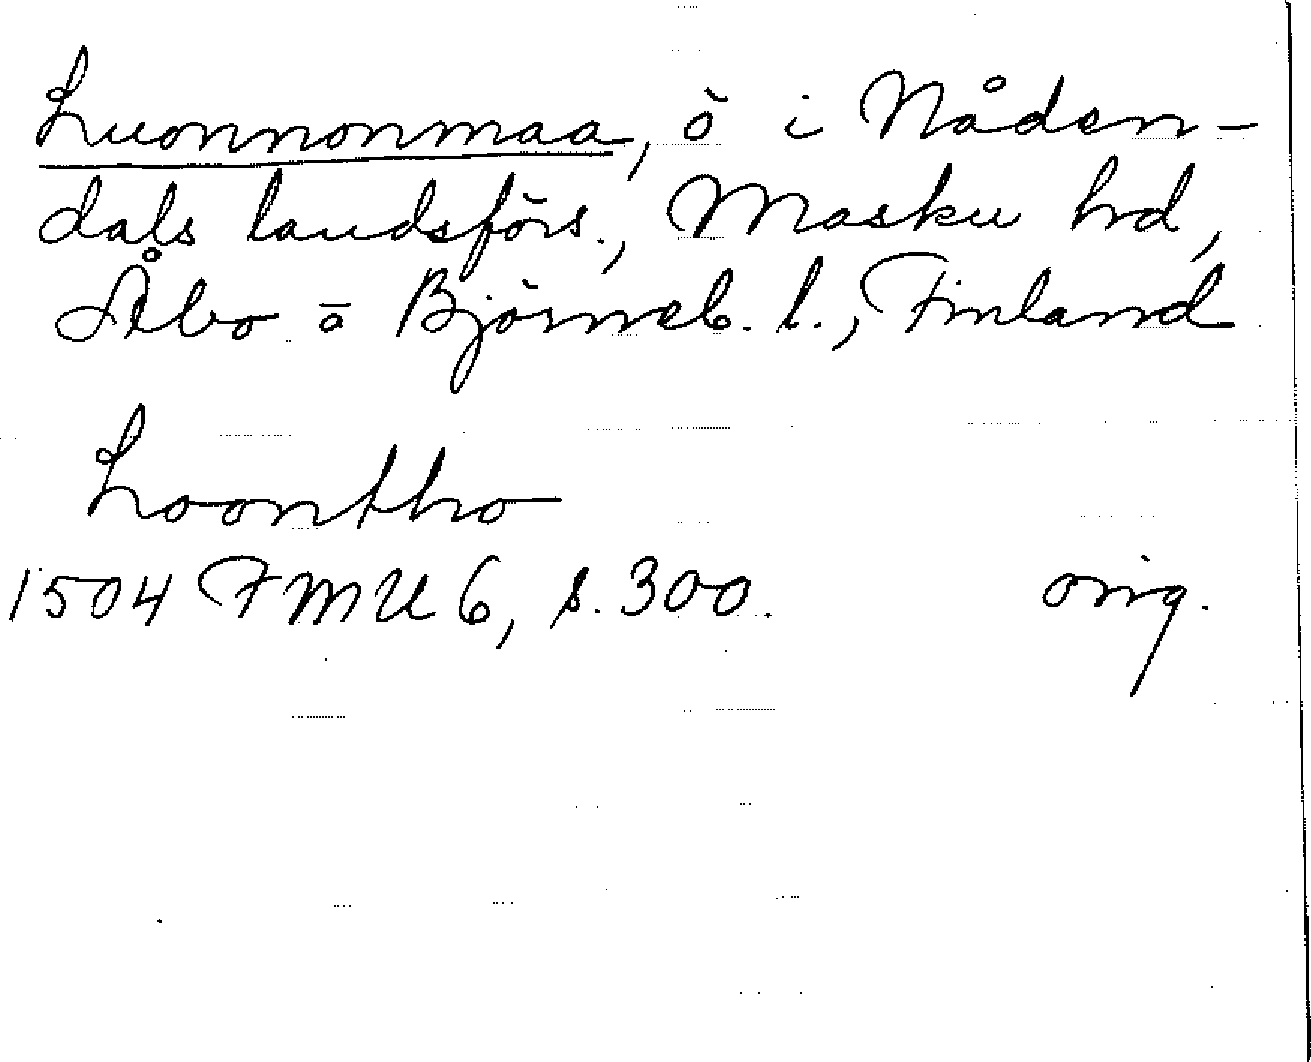 Luonnonmaa, ö i Nåden-
dals landsförs., Masku hd,
Åbo o Björneb. l., Finland
Loontho
1504 FMU 6, s. 300. orig.